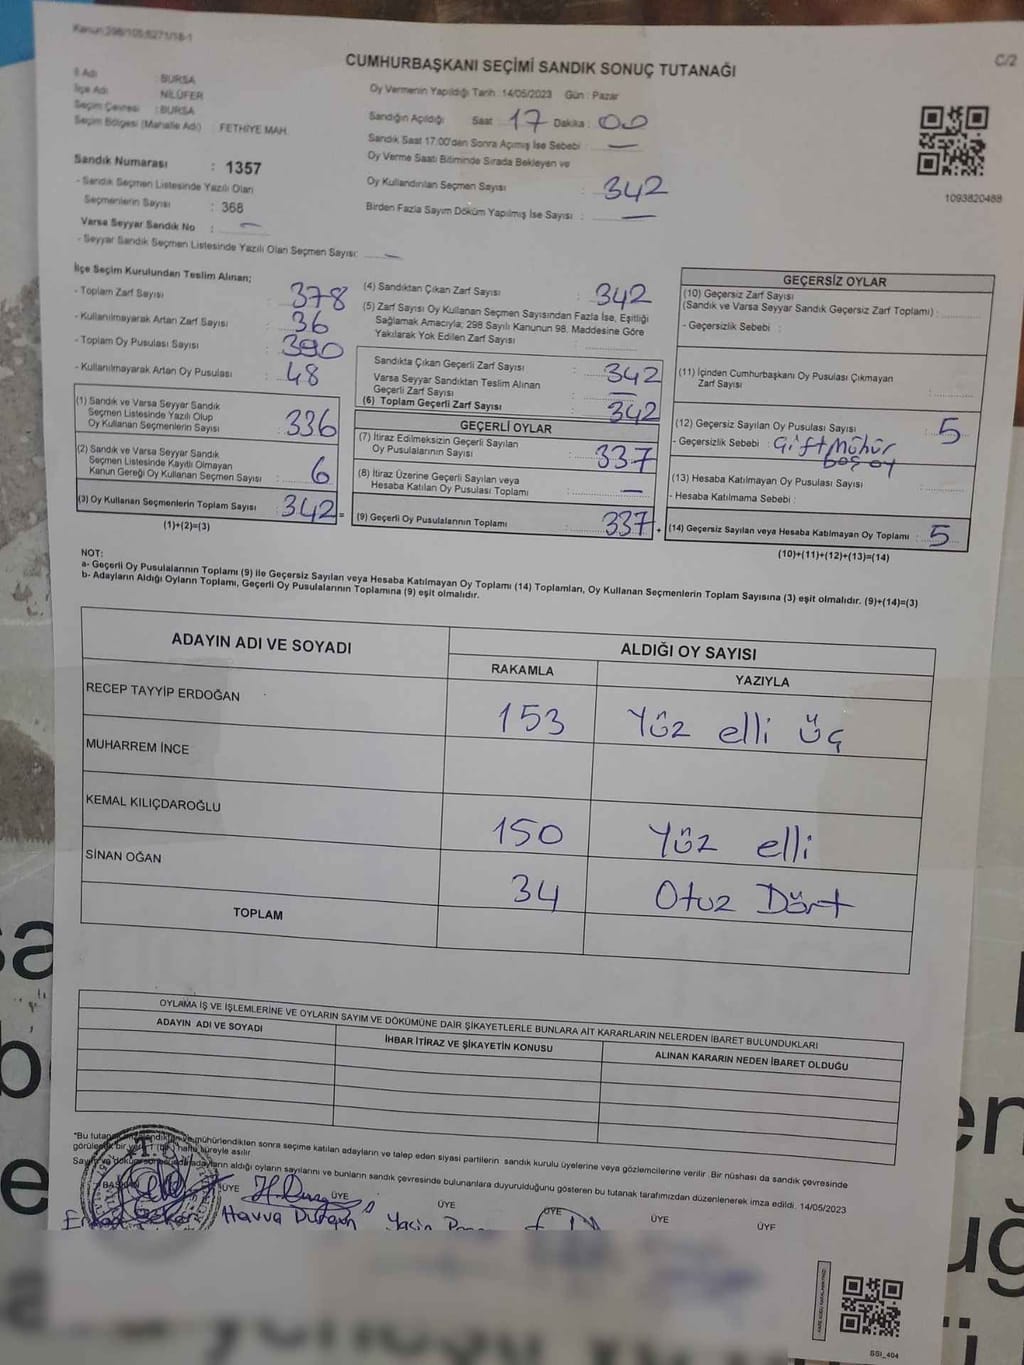 Kanun:298/105;6271/18-1
C/2
CUMHURBAŞKANI SEÇİMİ SANDIK SONUÇ TUTANAĞI
İl Adı : BURSA
İlçe Adı : NİLÜFER
Seçim Çevresi : BURSA
Seçim Bölgesi (Mahalle Adı) : FETHİYE MAH.
Sandık Numarası : 1357
- Sandık Seçmen Listesinde Yazılı Olan
Seçmenlerin Sayısı : 368
Varsa Seyyar Sandık No : —
- Seyyar Sandık Seçmen Listesinde Yazılı Olan Seçmen Sayısı: —
Oy Vermenin Yapıldığı Tarih :14/05/2023 Gün : Pazar
Sandığın Açıldığı Saat : 17 Dakika : 00
Sandık Saat 17:00'den Sonra Açımış İse Sebebi : —
Oy Verme Saati Bitiminde Sırada Bekleyen ve
Oy Kullandırılan Seçmen Sayısı : 342
Birden Fazla Sayım Döküm Yapılmış İse Sayısı : —
1093820488
İlçe Seçim Kurulundan Teslim Alınan;
- Toplam Zarf Sayısı : 378
- Kullanılmayarak Artan Zarf Sayısı : 36
- Toplam Oy Pusulası Sayısı : 390
- Kullanılmayarak Artan Oy Pusulası : 48
(1) Sandık ve Varsa Seyyar Sandık
Seçmen Listesinde Yazılı Olup
Oy Kullanan Seçmenlerin Sayısı : 336
(2) Sandık ve Varsa Seyyar Sandık
Seçmen Listesinde Kayıtlı Olmayan
Kanun Gereği Oy Kullanan Seçmen Sayısı : 6
(3) Oy Kullanan Seçmenlerin Toplam Sayısı : 342 =
(1)+(2)=(3)
(4) Sandıktan Çıkan Zarf Sayısı : 342
(5) Zarf Sayısı Oy Kullanan Seçmen Sayısından Fazla İse, Eşitliği
Sağlamak Amacıyla; 298 Sayılı Kanunun 98. Maddesine Göre
Yakılarak Yok Edilen Zarf Sayısı :
Sandıkta Çıkan Geçerli Zarf Sayısı : 342
Varsa Seyyar Sandıktan Teslim Alınan
Geçerli Zarf Sayısı : —
(6) Toplam Geçerli Zarf Sayısı : 342
GEÇERLİ OYLAR
(7) İtiraz Edilmeksizin Geçerli Sayılan
Oy Pusulalarının Sayısı : 337
(8) İtiraz Üzerine Geçerli Sayılan veya
Hesaba Katılan Oy Pusulası Toplamı : —
(9) Geçerli Oy Pusulalarının Toplamı : 337 +
GEÇERSİZ OYLAR
(10) Geçersiz Zarf Sayısı
(Sandık ve Varsa Seyyar Sandık Geçersiz Zarf Toplamı) :
- Geçersizlik Sebebi :
(11) İçinden Cumhurbaşkanı Oy Pusulası Çıkmayan
Zarf Sayısı :
(12) Geçersiz Sayılan Oy Pusulası Sayısı : 5
- Geçersizlik Sebebi : Çift Mühür
boş oy
(13) Hesaba Katılmayan Oy Pusulası Sayısı :
- Hesaba Katılmama Sebebi :
(14) Geçersiz Sayılan veya Hesaba Katılmayan Oy Toplamı : 5
(10)+(11)+(12)+(13)=(14)
NOT:
a- Geçerli Oy Pusulalarının Toplamı (9) ile Geçersiz Sayılan veya Hesaba Katılmayan Oy Toplamı (14) Toplamları, Oy Kullanan Seçmenlerin Toplam Sayısına (3) eşit olmalıdır. (9)+(14)=(3)
b- Adayların Aldığı Oyların Toplamı, Geçerli Oy Pusulalarının Toplamına (9) eşit olmalıdır.
ADAYIN ADI VE SOYADI
ALDIĞI OY SAYISI
RAKAMLA YAZIYLA
RECEP TAYYİP ERDOĞAN 153 Yüz elli Üç
MUHARREM İNCE
KEMAL KILIÇDAROĞLU 150 Yüz elli
SİNAN OĞAN 34 Otuz Dört
TOPLAM
OYLAMA İŞ VE İŞLEMLERİNE VE OYLARIN SAYIM VE DÖKÜMÜNE DAİR ŞİKAYETLERLE BUNLARA AİT KARARLARIN NELERDEN İBARET BULUNDUKLARI
ADAYIN ADI VE SOYADI İHBAR İTİRAZ VE ŞİKAYETİN KONUSU ALINAN KARARIN NEDEN İBARET OLDUĞU
"Bu mühürlendikten sonra seçime katılan adayların ve talep eden siyasi partilerin sandık kurulu üyelerine veya gözlemcilerine verilir. Bir nüshası da sandık çevresinde
görülebilir bir yere 1 (bir) hafta süreyle asılır.
adayların aldığı oyların sayılarını ve bunların sandık çevresinde bulunanlara duyurulduğunu gösteren bu tutanak tarafımızdan düzenlenerek imza edildi. 14/05/2023
BAŞKAN ÜYE ÜYE ÜYE ÜYE ÜYE ÜYE
Havva Yasin
T.C.
SSI_404